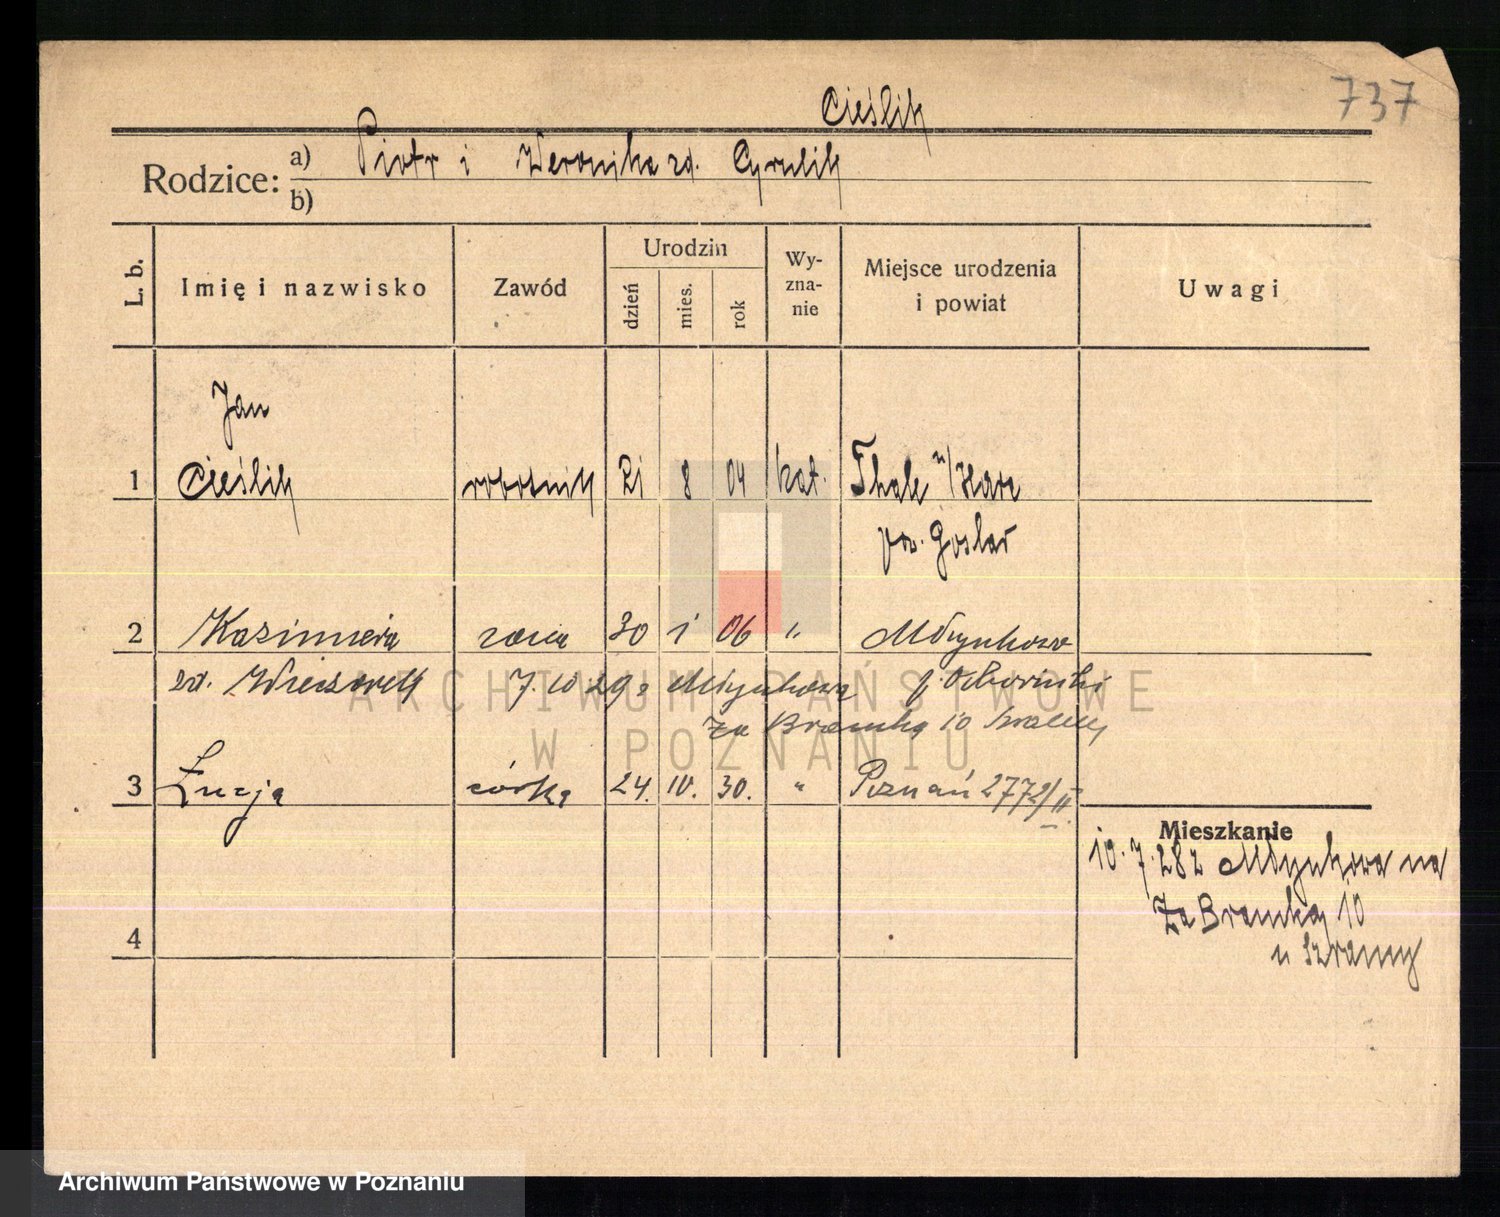 737
Cieślik
Rodzice: a) Piotr i Weronika zd. Cyrulik
b)
L. b. Imię i nazwisko Zawód Urodzin dzień mies. rok Wyznanie Miejsce urodzenia i powiat Uwagi
Jan
1 Cieślik robotnik 21 8 04 kat. Thale n/Harz
pow. Goslar
2 Kazimiera żona 30 1 06 " Młynkowo
zd. Wieczorek 7.10.29 z Młynkowa
Za Bramką 10
3 Łucja córka 24. 10. 30. " Poznań 2772/II.
Mieszkanie
10.7.28 z Młynkowa na
Za Bramką 10
u Szramy
4
ARCHIWUM PAŃSTWOWE
W POZNANIU
Archiwum Państwowe w Poznaniu